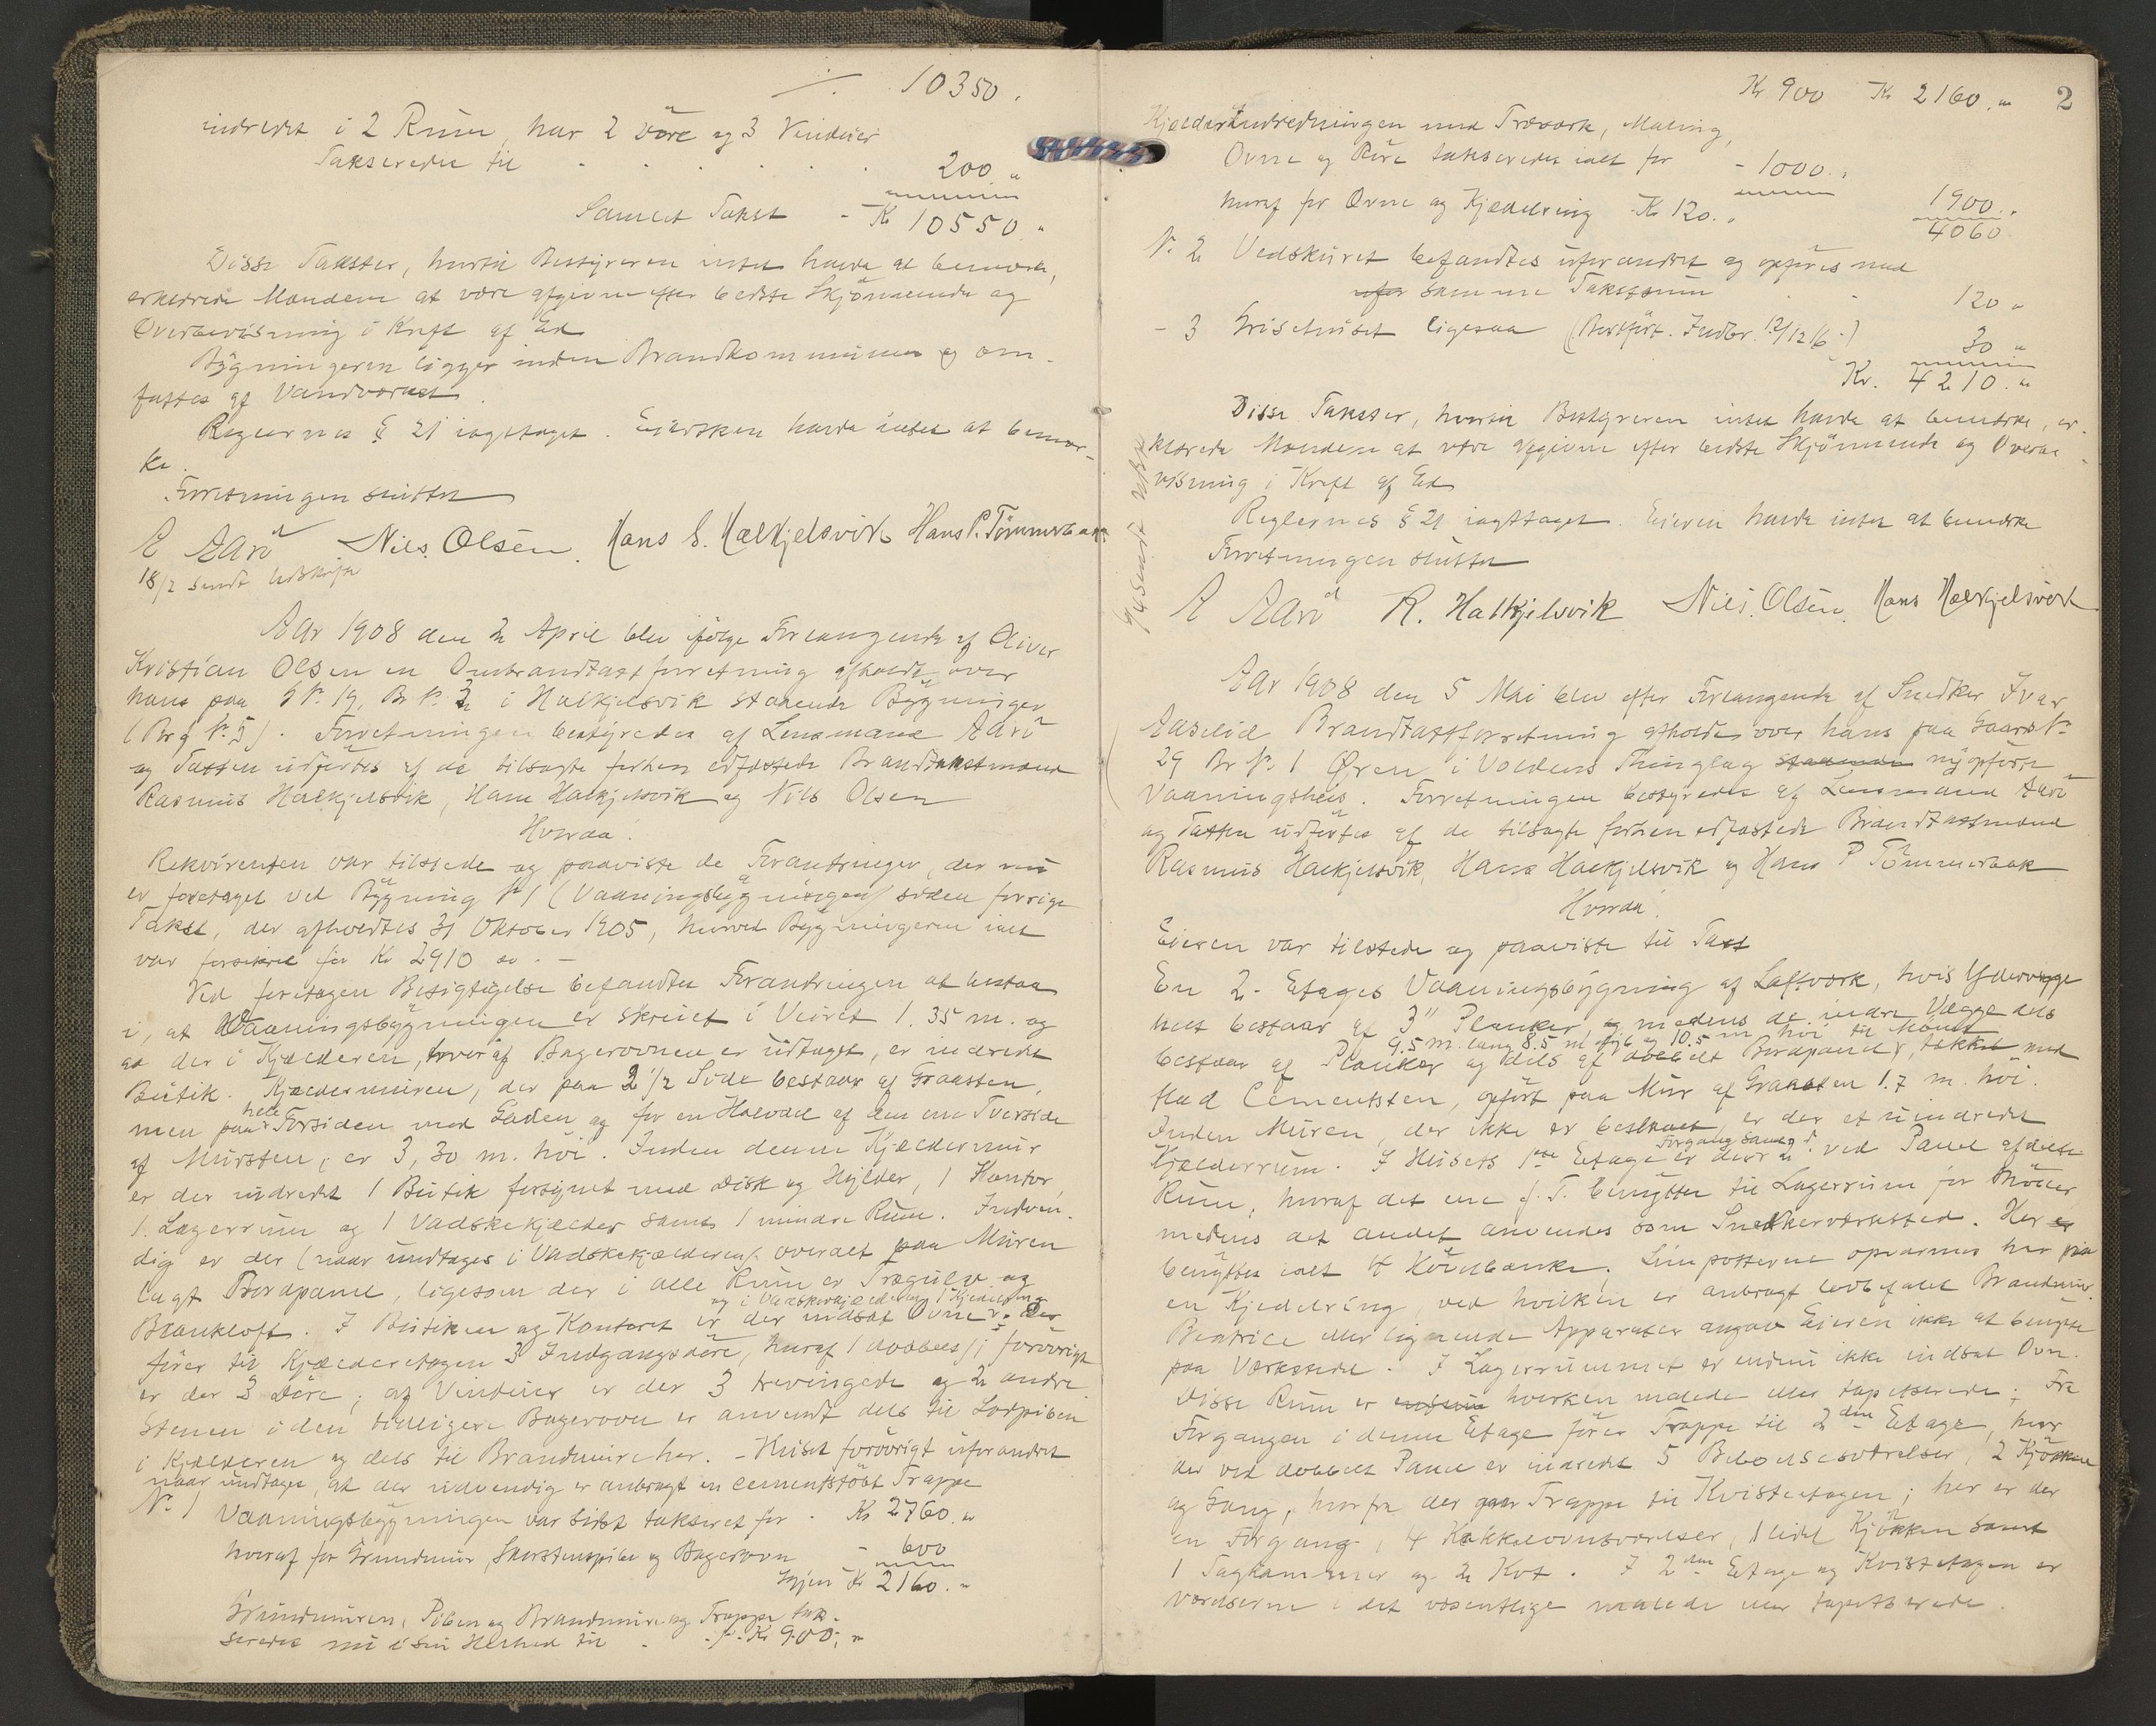 10350.
indredet i 2 Rum, har 2 Døre og 3 Vinduer
Takseredes til . . . . . 200 "
Samlet Takst - Kr 10550 "
Disse Takster, hvortil Bestyreren intet havde at bemærke,
erklærede Mændene at være afgivne efter bedste Skjønnende og
Overbevisning i Kraft af Ed
Bygningerne ligger inden Brandkommunen og om-
fattes af Vandværket.
Reglernes § 21 iagttaget. Eiersken havde intet at bemær-
ke.
Forretningen sluttet
E Aarö Nils Olsen. Hans S. Halkjelsvik Hans P. Tömmerbak
18/2 sendt Udskrift
Aar 1908 den 2 April blev ifølge Forlangende af Oliver
Kristian Olsen en Ombrandtaxtforretning afholdt over
hans paa G No. 19, Br No. 2 i Halkjelsvik staaende Bygninger
(Brg No. 5). Forretningen bestyredes af Lensmand Aarö
og Taxten udførtes af de tilsagte forhen edfæstede Brandtakstmænd
Rasmus Halkjelsvik, Hans Halkjelsvik og Nils Olsen
Hvorda:
Rekvirenten var tilstede og paaviste de Forandringer, der nu
er foretaget ved Bygning No 1 (Vaaningsbygningen) siden forrige
Takst, der afholdtes 31 Oktober 1905, hvorved Bygningerne ialt
var forsikret for Kr 2910 . -
Ved foretagen Besigtigelse befandtes Forandringen at bestaa
i, at Vaaningsbygningen er skruet i Veiret 1.35 m. og
at der i Kjælderen, hvoraf Bagerovnen er udtaget, er indredet
Butik. Kjældermuren, der paa 2 1/2 Side bestaar af Graasten,
men paa hele Forsiden mod Gaden og for en Halvdel af den ene Tverside
af Mursten, er 3,30 m. høi. Inden denne Kjældermur
er der indredet 1 Butik forsynet med Disk og Hylder, 1 Kontor,
1 Lagerrum og 1 Vadskekjælder samt 1 mindre Rum. Indven-
dig er der (naar undtages i Vadskekjælderen) overalt paa Muren
lagt Bordpanel, ligesom der i alle Rum er Trægulv og
og i Vadskekjælderen 1 Kjedelring
Blankloft. I Butiken og Kontoret er der indsat Ovne. Der
fører til Kjælderetagen 3 Indgangsdøre, hvoraf 1 dobbelt; forøvrigt
er der 3 Døre; af Vinduer er der 3 trevingede og 2 andre
Stenen i den tidligere Bagerovn er anvendt dels til Sodpiben
i Kjælderen og dels til Brandmure her. - Huset forøvrigt uforandret
naar undtages, at der udvendig er anbragt en cementstøbt Trappe
No. 1 Vaaningsbygningen var sidst takseret for . Kr 2760 "
hvoraf for Grundmur, Skorstenspibe og Bagerovn - 600
Igjen Kr 2160. "
Grundmuren, Piben og Brandmure og Trappe tak-
seredes nu i sin Helhed til . . Kr 900, "
Kr 900 Kr 2160. " 2
Kjælderindredningen med Træværk, Maling,
Ovne og Røre takseredes ialt for - 1000. "
hvoraf for Ovne og Kjedelring Kr 120. " 1900. "
4060
No. 2 Vedskuret befandtes uforandret og opføres med
samme Takstsum . . 120 "
- 3 Grisehuset ligesaa (Bortført. Indbr. 12/12 16.) 30 "
Kr. 4210. "
Disse Takster, hvortil Bestyreren intet havde at bemærke, er-
klærede Mændene at være afgivne efter bedste Skjønnende og Overbe-
visning i Kraft af Ed
Reglernes § 21 iagttaget. Eieren havde intet at bemærke
Forretningen sluttet
E Aarö R. Halkjelsvik Nils Olsen. Hans Halkjelsvik
9/4 sendt Udskr
Aar 1908 den 5 Mai blev efter Forlangende af Snedker Ivar
Aaselid Brandtaxtforretning afholdt over hans paa Gaards No
29 Br No. 1 Øren i Voldens Thinglag staaende nyopførte
Vaaningshus. Forretningen bestyredes af Lensmand Aarö
og Taxten udførtes af de tilsagte forhen edfæstede Brandtaxtmænd
Rasmus Halkjelsvik, Hans Halkjelsvik og Hans P Tömmerbak
Hvorda:
Eieren var tilstede og paaviste til Taxt
En 2. Etages Vaaningsbygning af Laftværk, hvis Ydervægge
helt bestaar af 3" Planker, og medens de indre Vægge dels
9.5 m. lang 8.5 m. og 10.5 m høi til Mønet
bestaar af Planker og dels af dobbelt Bordpanel, tækket med
flad Cementsten, opført paa Mur af Graasten 1.7 m. høi.
Inden Muren, der ikke er beslaaet, er der et uindredet
Kjælderrum. I Husets 1ste Etage er der Forgang samt 2 ved Panel afdelte
Rum, hvoraf det ene f. T. benyttes til Lagerrum for Møbler
medens det andet anvendes som Snedkerværksted. Her er
benyttes ialt 4 Høvelbænke. Limpotterne opvarmes her paa
en Kjedelring, ved hvilken er anbragt lovbefalet Brandmur.
Beatrice eller lignende Apparater angav Eieren ikke at benytte
paa Værkstedet. I Lagerrummet er endnu ikke indsat Ovn.
Disse Rum er hverken malede eller tapetserede. Fra
Forgangen i denne Etage fører Trappe til 2den Etage, hvor
der ved dobbelt Panel er indredet 5 Beboelsesværelser, 2 Kjøkken
og Gang, hvorfra der gaar Trappe til Kvistetagen; her er der
en Forgang, 4 Kakkelovnsværelser, 1 lidet Kjøkken samt
1 Tagkammer og 2 Kot. I 2den Etage og Kvistetagen er
Værelserne i det væsentlige malede eller tapetserede.